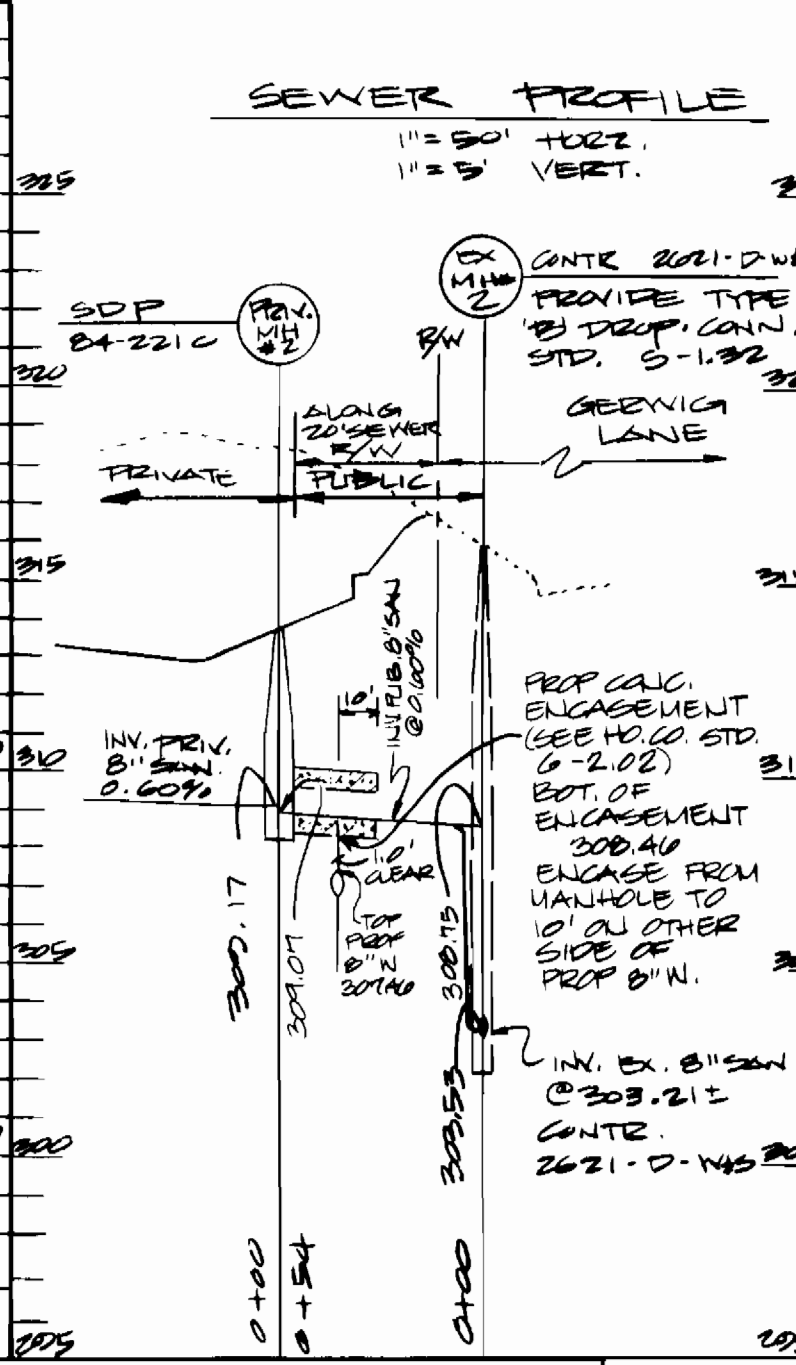 SEWER PROFILE
1" = 50' HORZ.
1" = 5' VERT.
325
EX
MH#
2
CONTR 2621-D-W&
PROVIDE TYPE
'B' DROP. CONN.
STD. S-1.32
SDP
84-221C
PRIV.
MH
#2
R/W
320
ALONG
20' SEWER
R/W
GERWIG
LANE
PRIVATE
PUBLIC
315
INV. PUB. 8" SAN
@ 0.60%
10'
PROP CONC.
ENCASEMENT
(SEE HO. CO. STD.
G-2.02)
BOT. OF
ENCASEMENT
308.46
ENCASE FROM
MANHOLE TO
10' ON OTHER
SIDE OF
PROP 8" W.
310
INV. PRIV.
8" SAN.
0.60%
1.0'
CLEAR
TOP
PROP
8" W
307.46
309.17
309.07
308.75
305
303.53
INV. EX. 8" SAN
@ 303.21±
CONTR.
2621-D-W&S
300
0+00
0+54
0+00
295